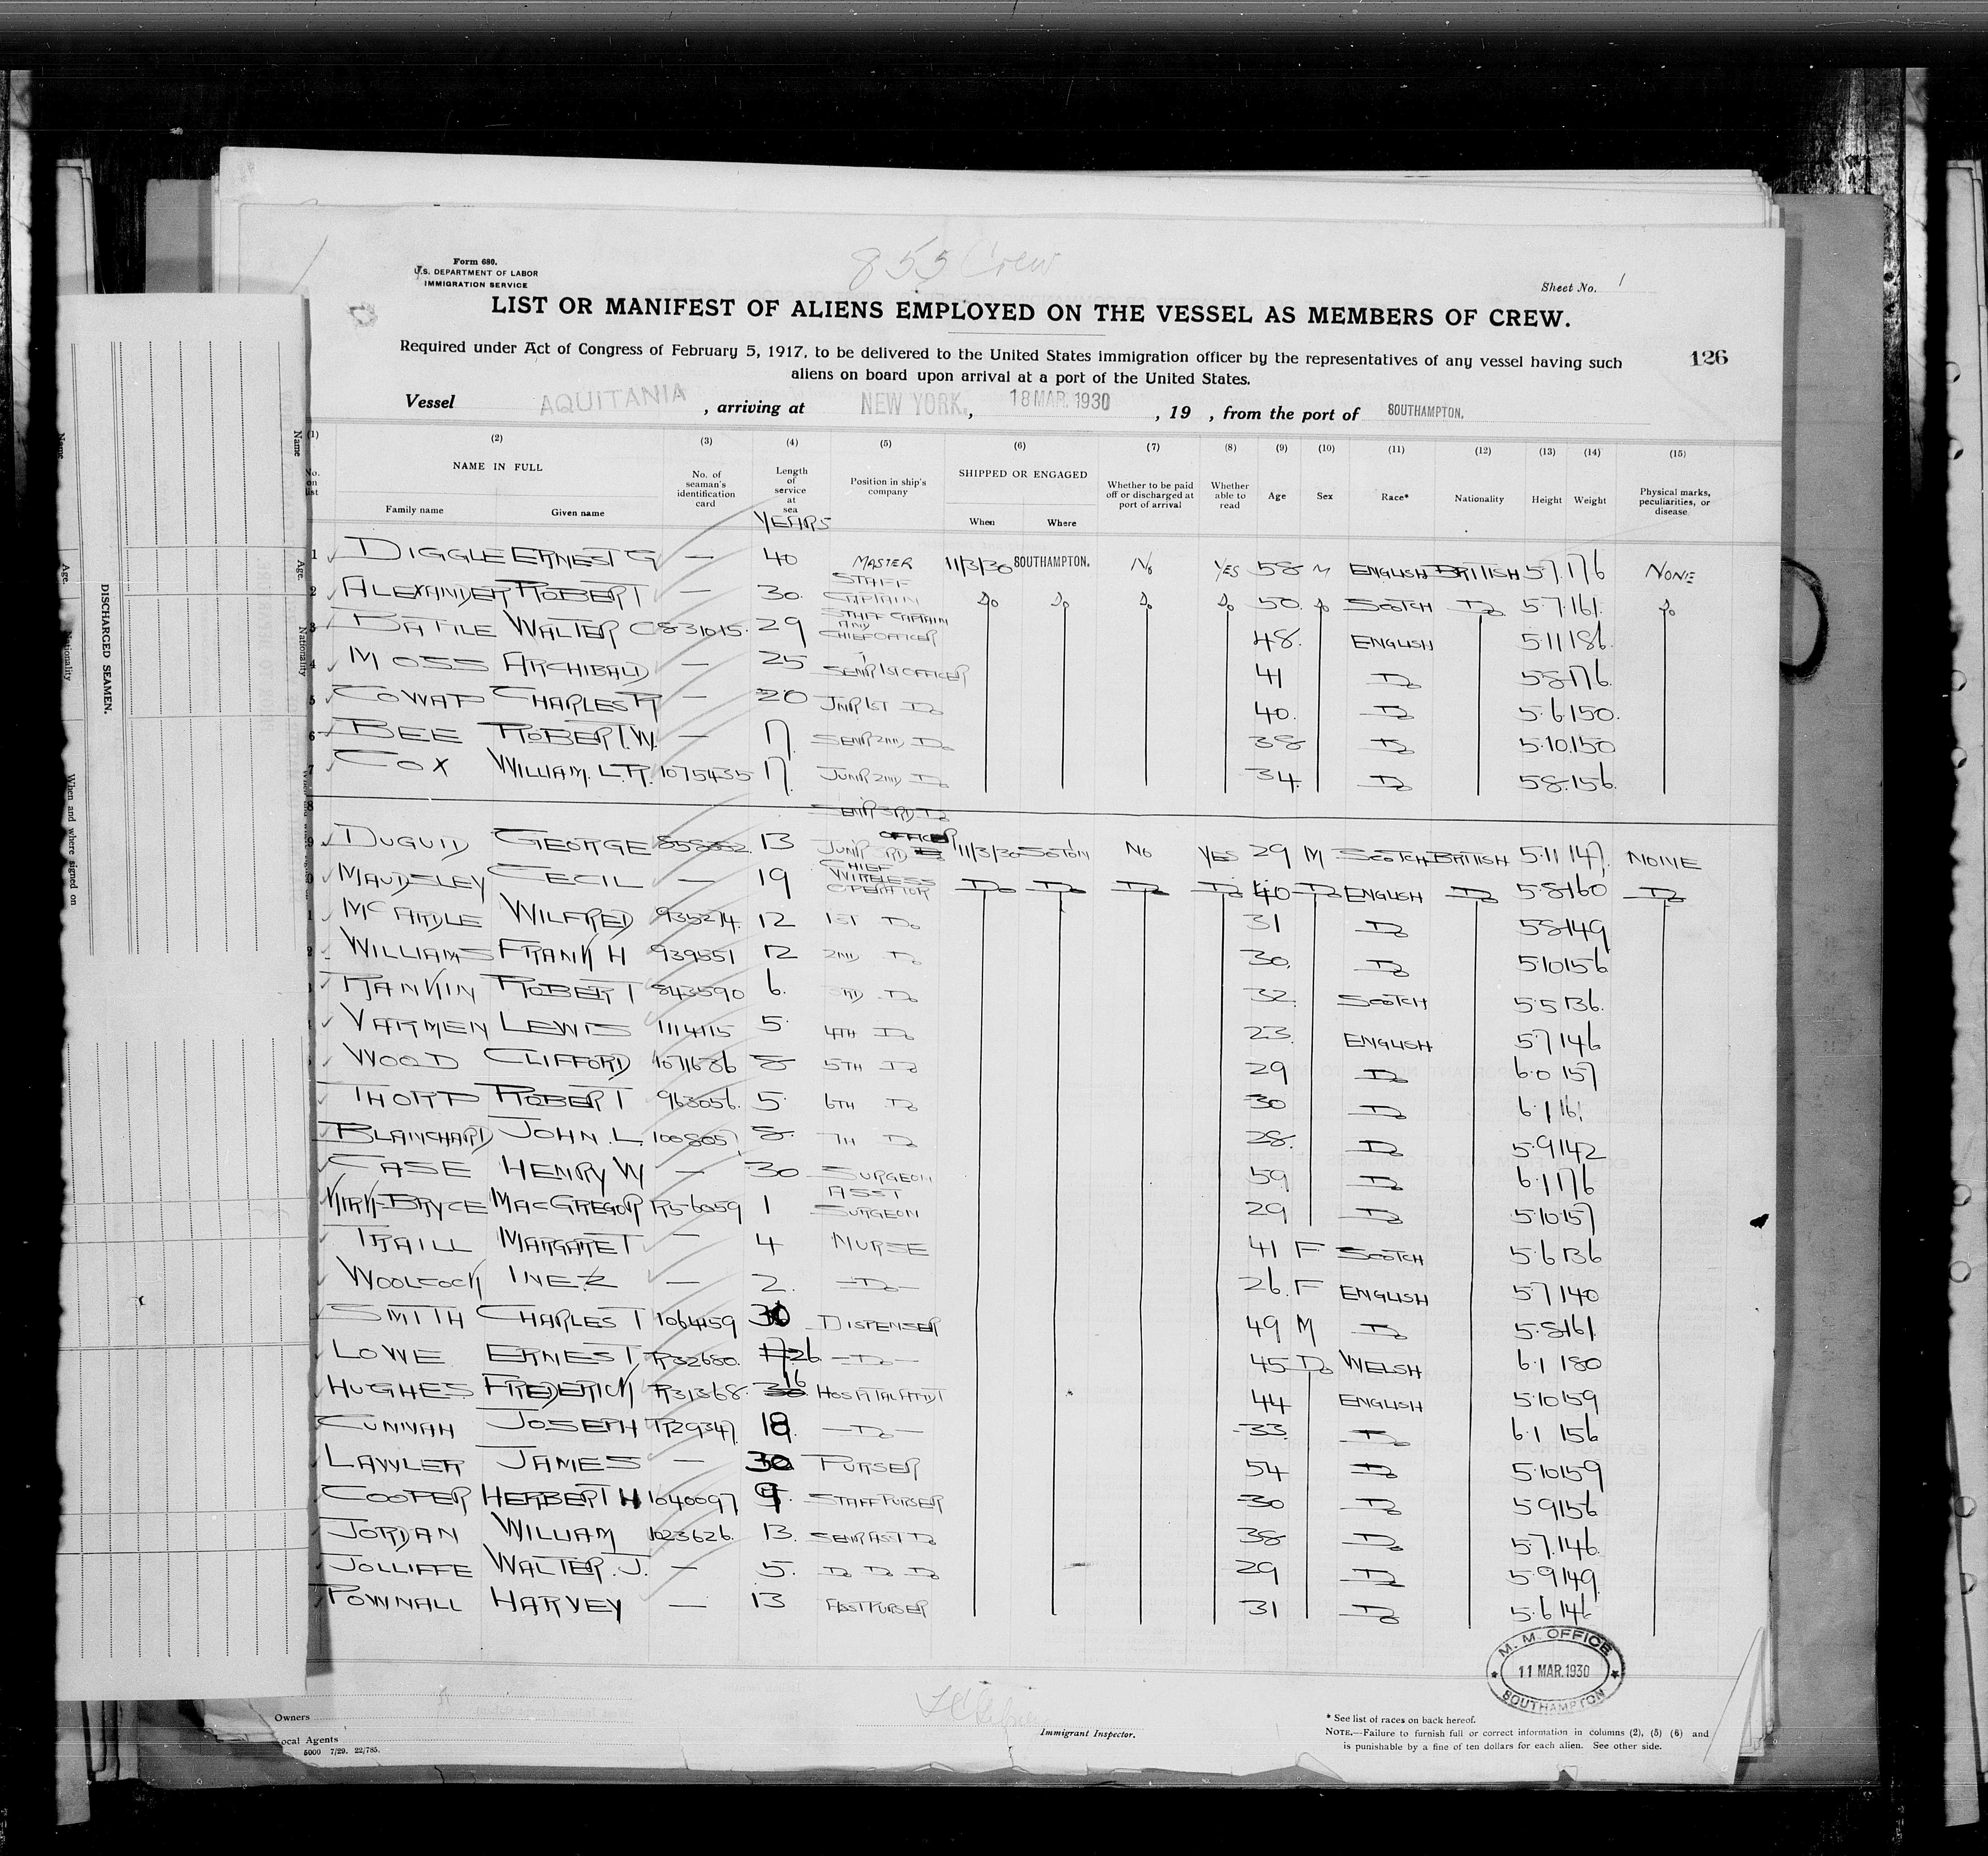 853 Crew
Form 680.
U.S. DEPARTMENT OF LABOR
IMMIGRATION SERVICE
Sheet No. 1
LIST OR MANIFEST OF ALIENS EMPLOYED ON THE VESSEL AS MEMBERS OF CREW.
Required under Act of Congress of February 5, 1917, to be delivered to the United States immigration officer by the representatives of any vessel having such
aliens on board upon arrival at a port of the United States.
126
Vessel AQUITANIA, arriving at NEW YORK., 18 MAR. 1930, 19 , from the port of SOUTHAMPTON.
(1) (2) (3) (4) (5) (6) (7) (8) (9) (10) (11) (12) (13) (14) (15)
No. on list NAME IN FULL Family name Given name No. of seaman's identification card Length of service at sea YEARS Position in ship's company SHIPPED OR ENGAGED When Where Whether to be paid off or discharged at port of arrival Whether able to read Age Sex Race* Nationality Height Weight Physical marks, peculiarities, or disease
1 DIGGLE ERNEST G — 40 MASTER 11/3/30 SOUTHAMPTON. No YES 58 M ENGLISH BRITISH 5.7 176 NONE
2 ALEXANDER ROBERT — 30 STAFF CAPTAIN Do Do Do Do 50 Do SCOTCH Do 5.7 161 Do
3 BATTLE WALTER C 831015 29 STAFF CAPTAIN AND CHIEF OFFICER 48 ENGLISH 5.11 186
4 MOSS ARCHIBALD — 25 SENR 1ST OFFICER 41 Do 5.8 176
5 COWAP CHARLES R — 20 JNR 1ST Do 40 Do 5.6 150
6 BEE ROBERT. W. — 17 SENR 2ND Do 38 Do 5.10 150
7 COX WILLIAM. L.R. 1075435 17 JUNR 2ND Do 34 Do 5.8 156
8 SENR 3RD Do
9 DUGUID GEORGE 13 JUNR 3RD OFFICER 11/3/30 SOTON NO YES 29 M SCOTCH BRITISH 5.11 147 NONE
MAUDSLEY CECIL — 19 CHIEF WIRELESS OPERATOR Do Do Do Do 40 Do ENGLISH Do 5.8 160 Do
MCARDLE WILFRED 935274 12 1ST Do 31 Do 5.8 149
WILLIAMS FRANK H 939551 12 2ND Do 30 Do 5.10 156
RANKIN ROBERT 843590 6 3RD Do 32 SCOTCH 5.5 136
VARMEN LEWIS 1114115 5 4TH Do 23 ENGLISH 5.7 146
WOOD CLIFFORD 1071686 8 5TH Do 29 Do 6.0 157
THORP ROBERT 963056 5 6TH Do 30 Do 6.1 161
BLANCHARD JOHN. L. 1008057 8 7TH Do 28 Do 5.9 142
CASE HENRY W — 30 SURGEON 59 Do 6.1 176
KIRK-BRYCE MACGREGOR R56059 1 ASST SURGEON 29 Do 5.10 157
TRAILL MARGARET — 4 NURSE 41 F SCOTCH 5.6 136
WOOLCOCK INEZ — 2 Do 26 F ENGLISH 5.7 140
SMITH CHARLES T 1064159 30 DISPENSER 49 M Do 5.8 161
LOWE ERNEST R32680 26 Do 45 Do WELSH 6.1 180
HUGHES FREDERICK R31368 16 HOSPITAL ATTDT 44 ENGLISH 5.10 159
CUNNAH JOSEPH R29347 18 Do 33 Do 6.1 156
LAWLER JAMES — 30 PURSER 54 Do 5.10 159
COOPER HERBERT H 1040097 9 STAFF PURSER 30 Do 5.9 156
JORDAN WILLIAM 1023626 13 SENR ASST Do 38 Do 5.7 146
JOLLIFFE WALTER. J. — 5 Do Do Do 29 Do 5.9 149
POWNALL HARVEY — 13 ASST PURSER 31 Do 5.6 146
M. M. OFFICE
11 MAR. 1930
SOUTHAMPTON
Owners
Local Agents
5000 7/29. 22/785.
Immigrant Inspector.
* See list of races on back hereof.
NOTE.—Failure to furnish full or correct information in columns (2), (5) (6) and
is punishable by a fine of ten dollars for each alien. See other side.
DISCHARGED SEAMEN.
Name
Age.
Nationality
When and where signed on
Name
Age.
Nationality